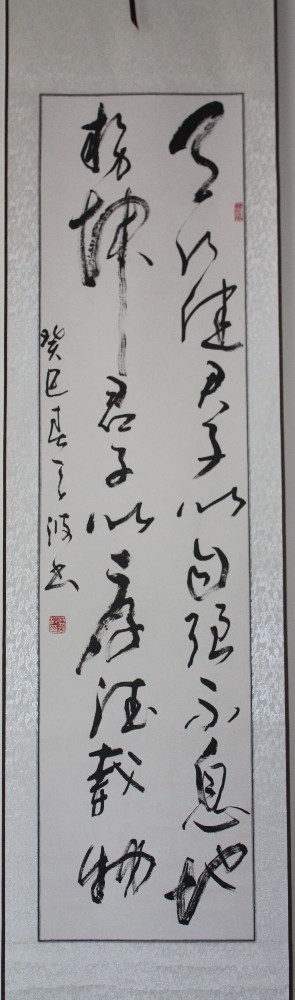 天行健君子以自强不息地
势坤君子以厚德载物
癸巳春天波书